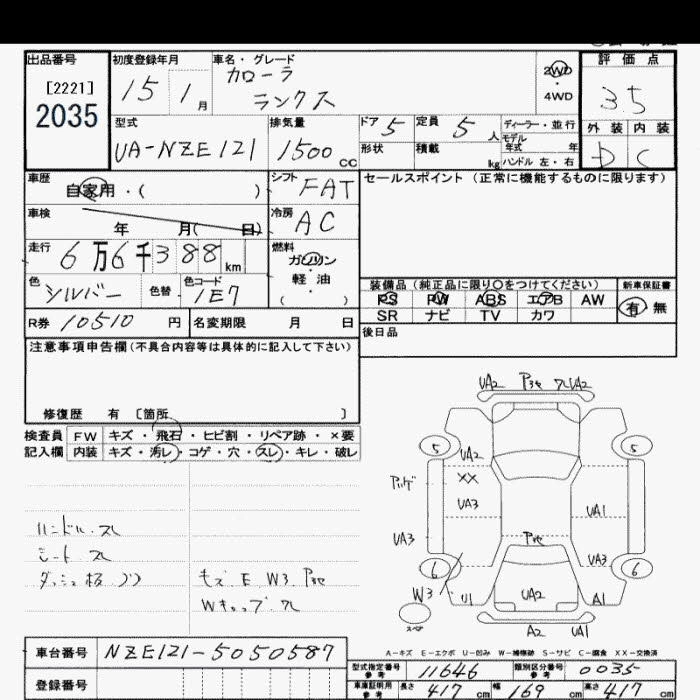 出品番号 初度登録年月 車名・グレード 評価点
[2221] 15 1月 カローラ 2WD 35
2035 ランクス 4WD
型式 排気量 ドア 5 定員 5人 ディーラー・並行 外装 内装
UA-NZE121 1500cc 形状 積載 kg モデル年式 年 D C
ハンドル 左・右
車歴 自家用・( ) シフト FAT セールスポイント (正常に機能するものに限ります)
車検 年 月( 日) 冷房 AC
走行 6万6千388km 燃料 ガソリン・軽油・( )
色 シルバー 色替 色コード 1E7 装備品 (純正品に限り○をつけてください) 新車保証書
PS PW ABS エアB AW 有・無
R券 10510円 名変期限 月 日 SR ナビ TV カワ
注意事項申告欄(不具合内容等は具体的に記入して下さい) 後日品
修復歴 有 〔箇所 〕
検査員 FW キズ・飛石・ヒビ割・リペア跡・×要
記入欄 内装 キズ・汚レ・コゲ・穴・スレ・キレ・破レ
UA2 UA2
5 5
UA2
XX
UA3 UA1
UA3 UA3
6 6
W3 U1 UA2 A1
A2 UA1
ハンドル.スレ
シート.スレ
キズ.E W3
A-キズ E-エクボ U-凹み W-補修跡 S-サビ C-腐食 XX-交換済
車台番号 NZE121-5050587
型式指定番号 参考 11646 類別区分番号 参考 0035
登録番号 車庫証明用 参考 長さ 417cm 幅 169cm 高さ 417cm